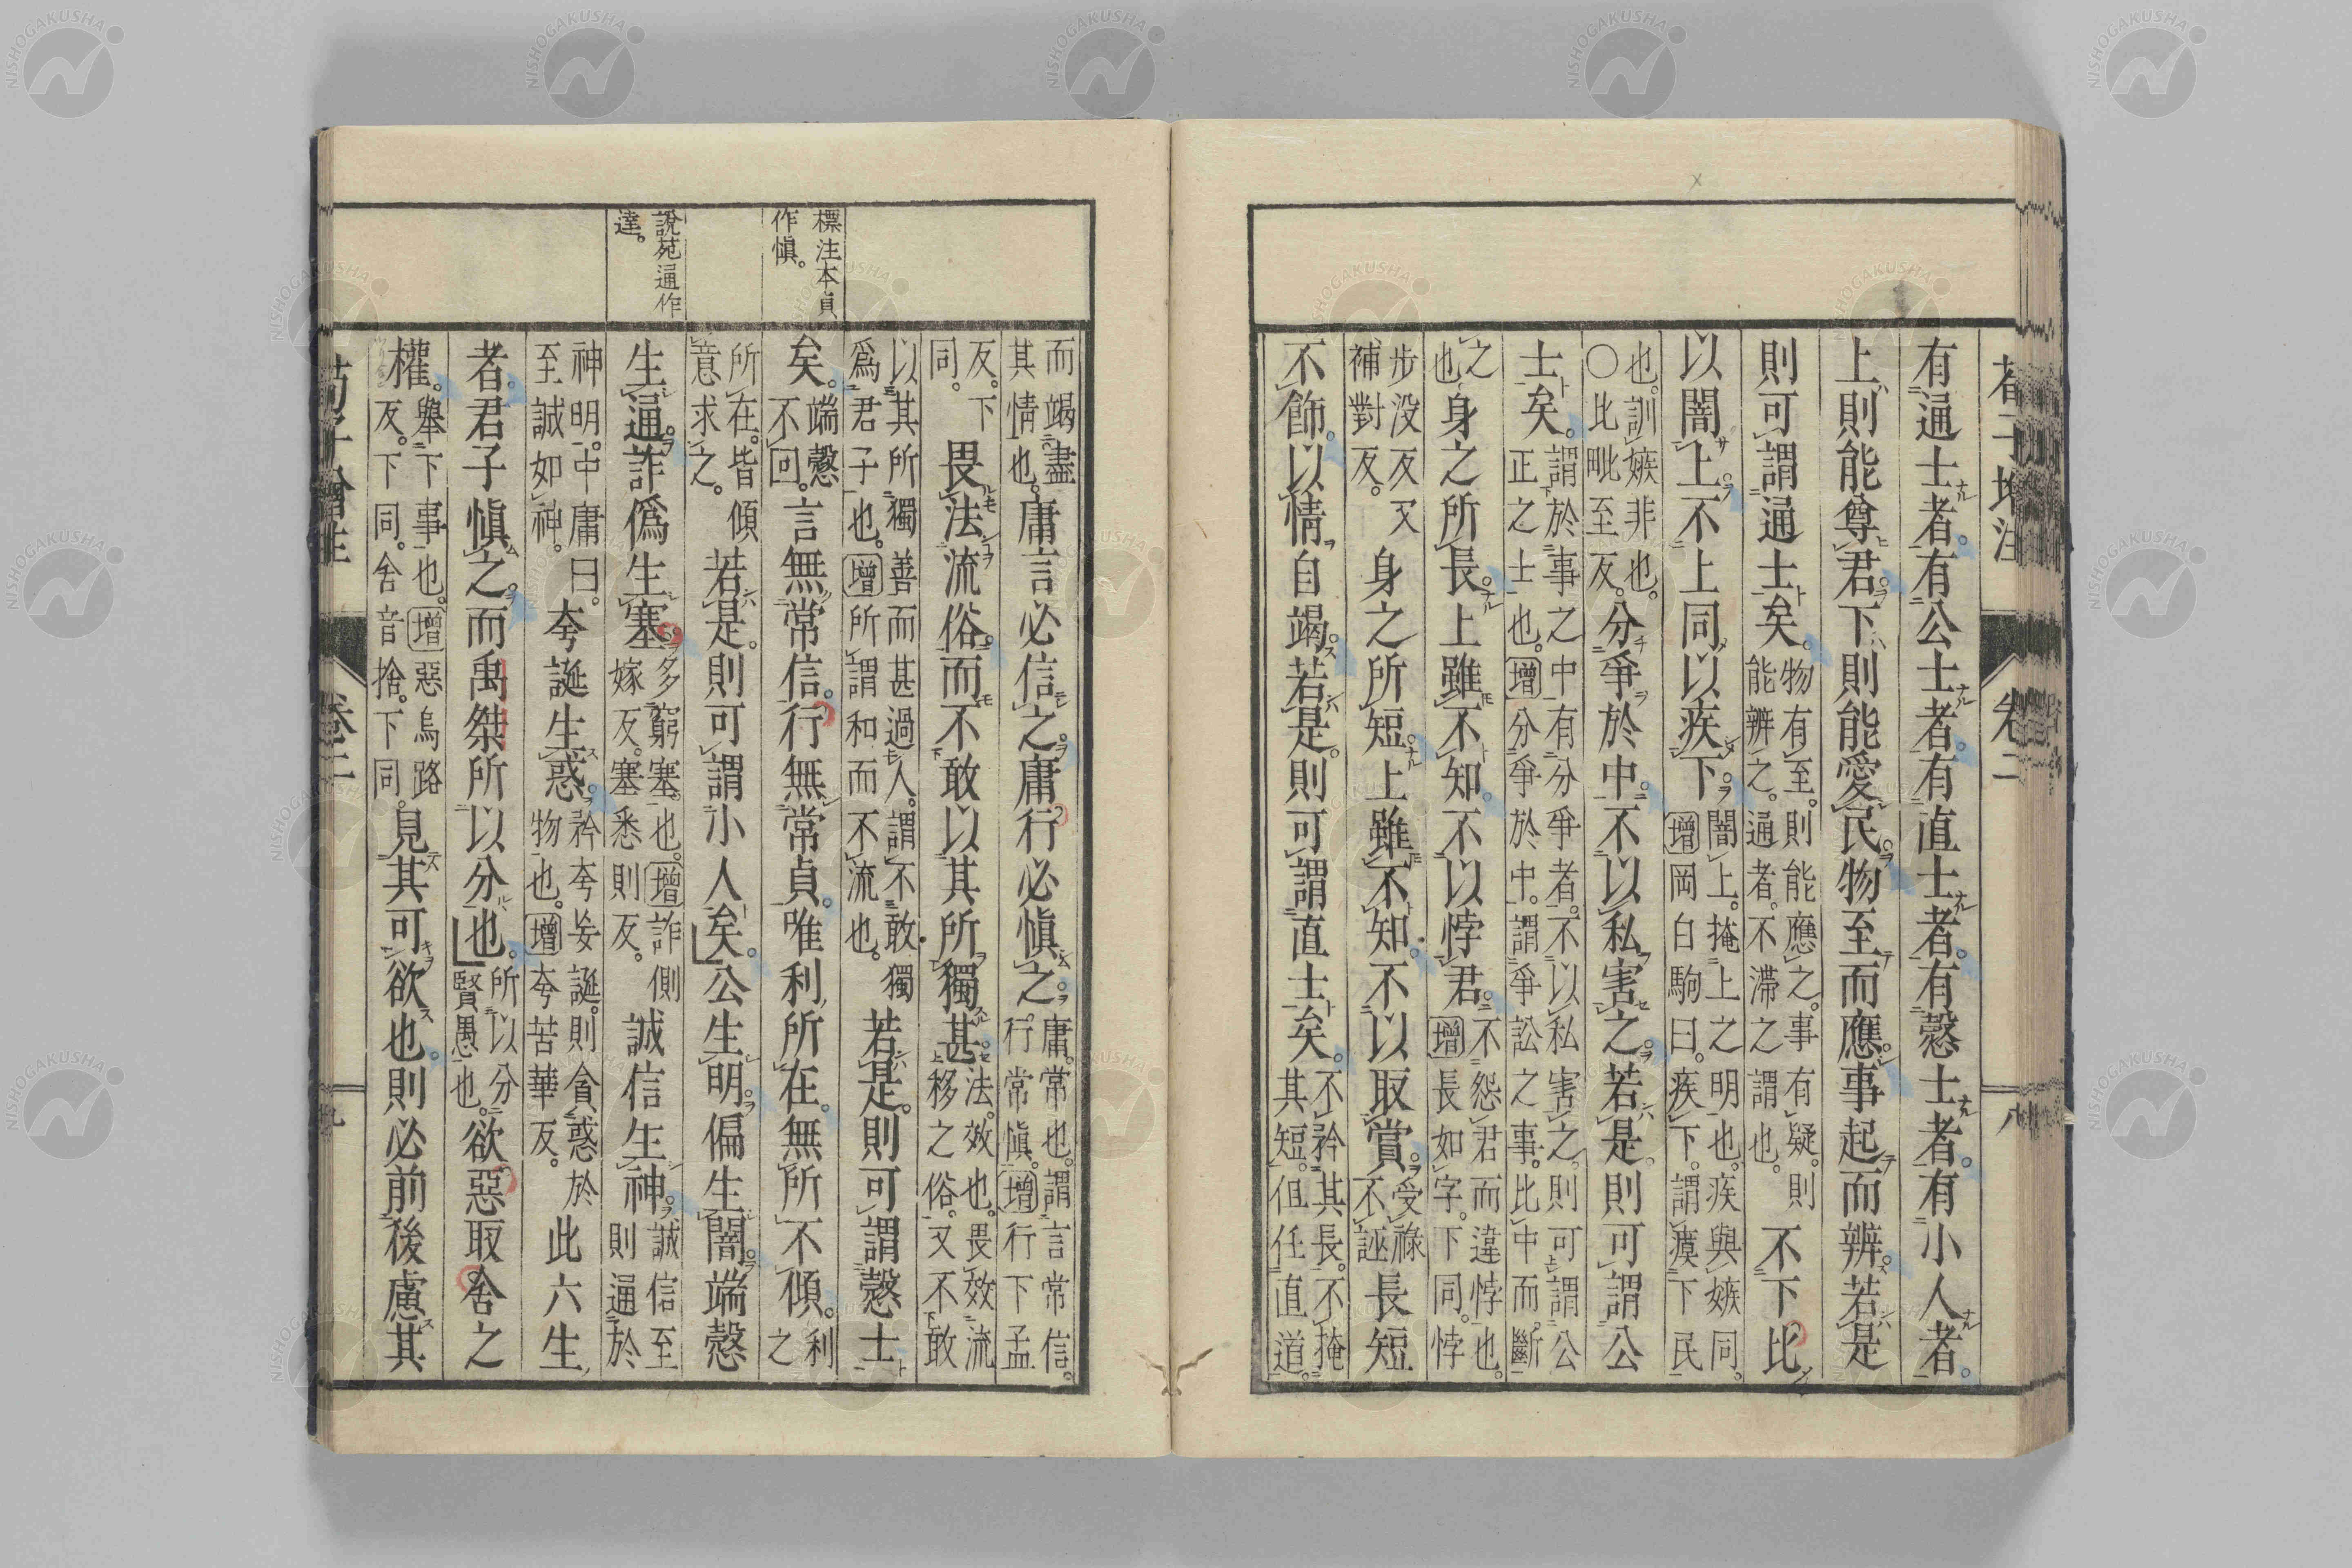 荀子增注　卷二　八
有通士者。有公士者。有直士者。有愨士者。有小人者。
上則能尊君。下則能愛民。物至而應。事起而辨。若是
則可謂通士矣。物有至。則能應之。事有疑。則能辨之。通者。不滯之謂也。不下比
以闇上。不上同以疾下。闇上。掩上之明也。疾與嫉同。增岡白駒曰。疾下。謂瘼下民
也。訓嫉非也。〇比毗至反。分爭於中。不以私害之。若是。則可謂公
士矣。謂於事之中有分爭者。不以私害之。則可謂公正之士也。增分爭於中。謂爭訟之事。比中而斷
之也身之所長。上雖不知。不以悖君。不怨君而違悖也。增長如字。下同。悖
步没反又補對反。身之所短。上雖不知。不以取賞。受祿不誣長短
不飾。以情自竭。若是。則可謂直士矣。不矜其長。不掩其短。但任直道。
而竭盡其情也。庸言必信之。庸行必愼之。庸。常也。謂言常信。行常愼。增行下孟
反。下同。畏法流俗。而不敢以其所獨甚。法。效也。畏效流移之俗。又不敢
以其所獨善而甚過人。謂不敢獨爲君子也。增所謂和而不流也。若是。則可謂愨士
標注本貞
作愼。
矣。端愨不回。言無常信。行無常貞。唯利所在。無所不傾。利之
所在。皆傾意求之。若是。則可謂小人矣。公生明。偏生闇。端愨
說苑通作
達。
生通。詐僞生塞。多窮塞也。增詐側嫁反。塞悉則反。誠信生神。誠信至則通於
神明。中庸曰。至誠如神。夸誕生惑。矜夸妄誕。則貪惑於物也。增夸苦華反。此六生
者。君子愼之。而禹桀所以分也。所以分賢愚也。欲惡取舍之
權。舉下事也。增惡烏路反。下同。舍音捨。下同。見其可欲也。則必前後慮其
荀子增注　卷二